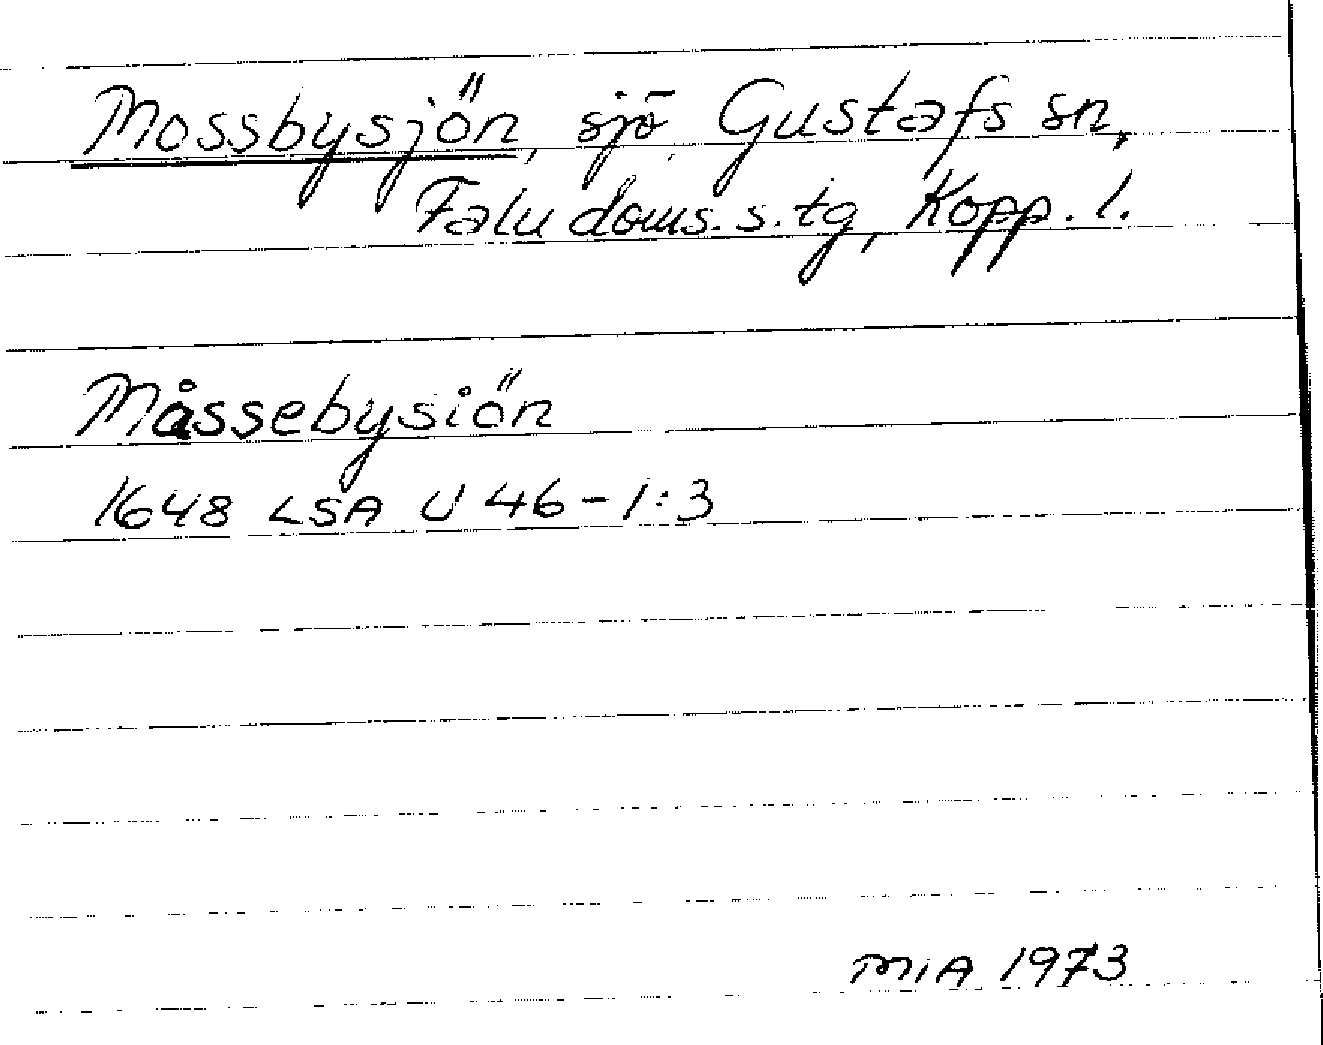 Mossbysjön, sjö, Gustafs sn,
Falu doms.s. tg, Kopp. l.
Måssebysiön
1648 LSA U 46-1:3
MIA 1973